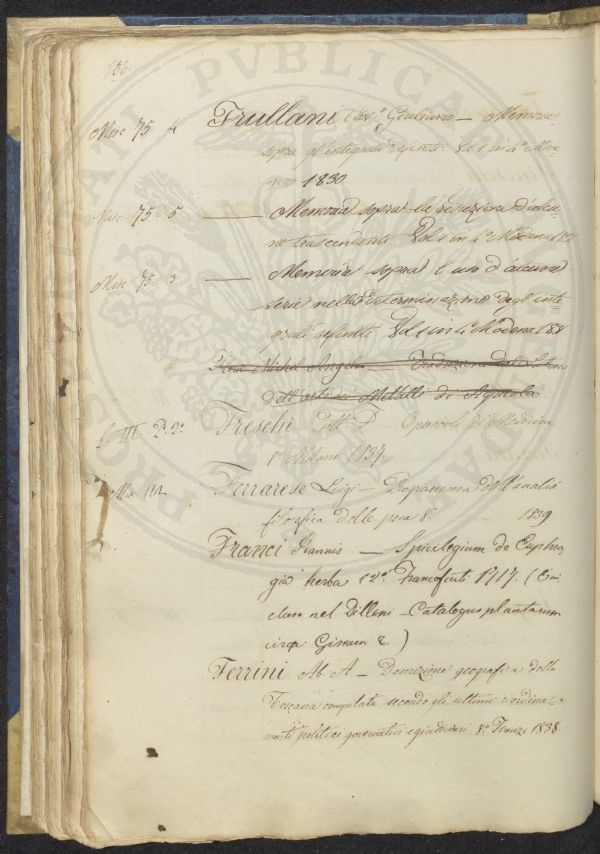 Misc 75 4 Frullani Cav.e Giuliano — Memoria
sopra gl'integrali definiti Vol 1 in 4° Mo-
1830
Misc 75 5 — Memoria sopra la riduzione d'alcu-
ne trascendenti Vol 1 in 4° Modena
Misc 75 3 — Memoria sopra l'uso d'alcune
serie nella determinazione degl'inte-
grali definiti Vol 1 in 4° Modena
Michel Angelo Traduzione dal Latino
dell' Metalli di Agricola
Freschi Dott F Opuscoli di Medicina
8° Milano 1837
Misc Ferrarese Luigi — Programma dell'analisi
filosofica delle pene 8° 1839
Franci Joannis — Spicilegium de Euphra-
gia herba 12° Francofurti 1717. (In
cluso nel Dilleni — Catalogus plantarum
circa Gissam &)
Ferrini Ab. A — Descrizione geografica della
Toscana compilata secondo gli ultimi riordina-
menti politici governativi e giudiziari 8° Firenze 1838.
PROSPERITATI PVBLICAE